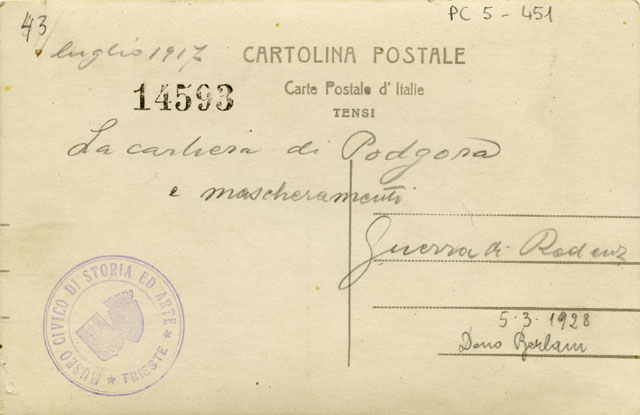 43
PC 5 - 451
luglio 1917
CARTOLINA POSTALE
14593
Carte Postale d'Italie
TENSI
La cartiera di Podgora
e mascheramenti
Guerra di Redenz
5-3-1928
Dono Berlam
MUSEO CIVICO DI STORIA ED ARTE
★ TRIESTE ★